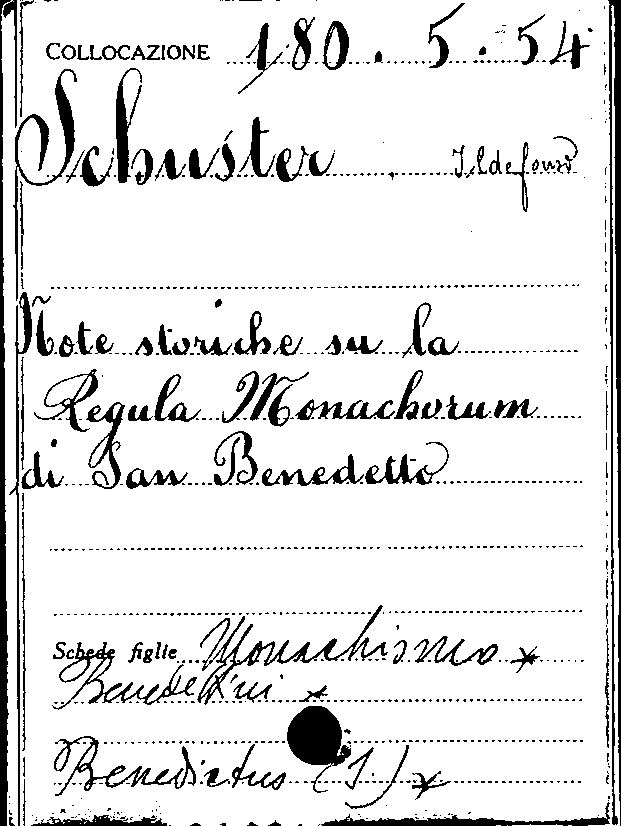 COLLOCAZIONE 180.5.54
Schuster. Ildefonso
Note storiche su la
Regula Monachorum
di San Benedetto
Schede figlie Monachismo *
Benedettini *
Benedictus (S.) *